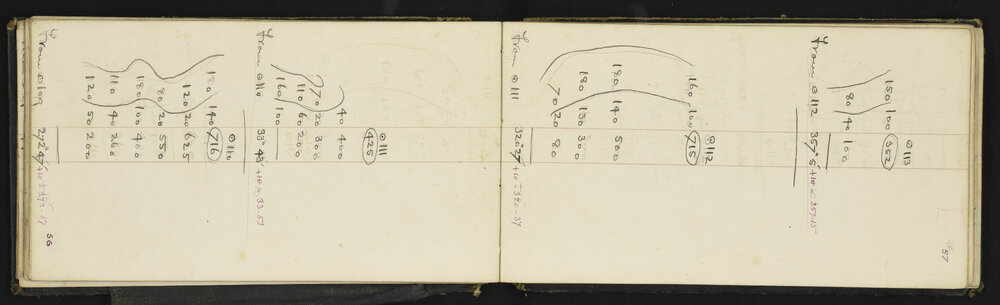 57
⊙ 113
150 100 352
80 40 100
From ⊙ 112 357° 5' +10' = 357-15
⊙ 112
160 100 715
180 140 500
180 130 300
70 20 80
From ⊙ 111 320° 27' +10' = 320-37
⊙ 111
425
40 400
70 20 300
110 60 200
160/100
From ⊙ 110 33° 43' +10' = 33-53
⊙ 110
180 140 716
120 120 625
80 20 550
180 100 400
110 40 260
120 50 200
From ⊙ 109 272° 47' +10' = 272-57
56